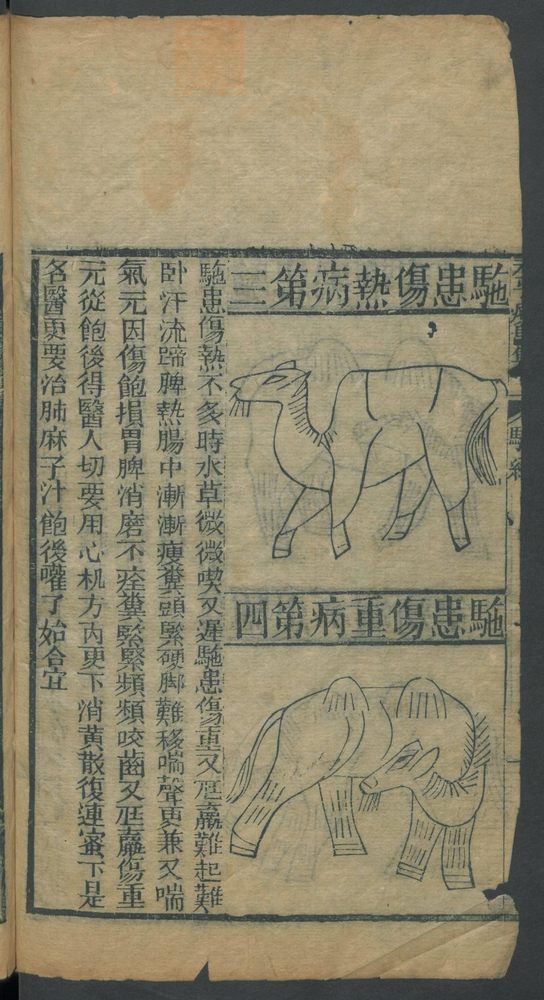 駞患傷熱病第三
駞患傷重病第四
駞患傷熱不多時水草微微喫又遲駞患傷重又尫羸難起難
卧汗流蹄脾熱腸中漸漸瘦糞頭緊硬脚難移喘聲更兼又喘
氣元因傷飽損胃脾消磨不痊糞緊緊頻頻咬齒又尫羸傷重
元從飽後得醫人切要用心机方内更下消黄散復連蜜下是
名醫更要治肺麻子汁飽後嚾了始合宜